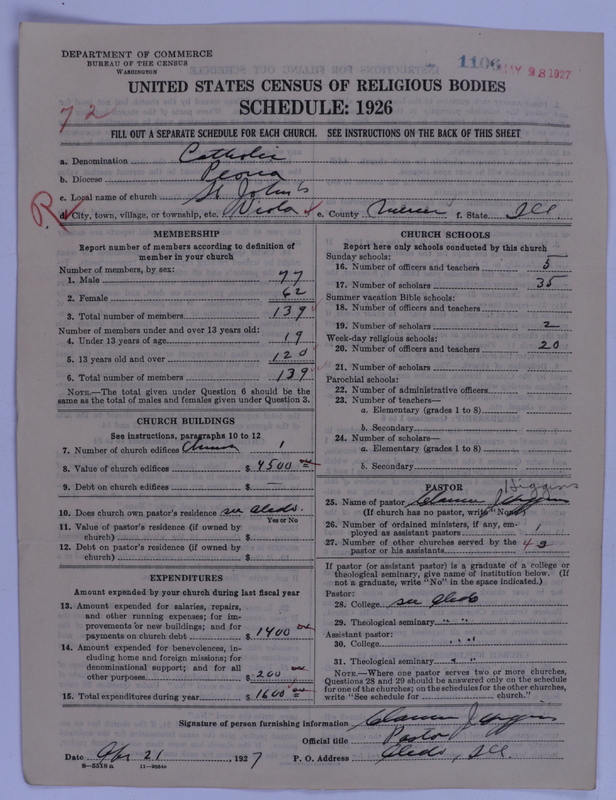 DEPARTMENT OF COMMERCE
BUREAU OF THE CENSUS
WASHINGTON
1106
MAY 28 1927
UNITED STATES CENSUS OF RELIGIOUS BODIES
SCHEDULE: 1926
72
FILL OUT A SEPARATE SCHEDULE FOR EACH CHURCH. SEE INSTRUCTIONS ON THE BACK OF THIS SHEET
a. Denomination Catholic
b. Diocese Peoria
c. Local name of church St John's
R d. City, town, village, or township, etc. Viola e. County Mercer f. State Ill
MEMBERSHIP
Report number of members according to definition of
member in your church
Number of members, by sex:
1. Male 77
2. Female 62
3. Total number of members 139
Number of members under and over 13 years old:
4. Under 13 years of age 19
5. 13 years old and over 120
6. Total number of members 139
NOTE.—The total given under Question 6 should be the
same as the total of males and females given under Question 3.
CHURCH BUILDINGS
See instructions, paragraphs 10 to 12
7. Number of church edifices Church 1
8. Value of church edifices $ 4500
9. Debt on church edifices $ —
10. Does church own pastor's residence see Aledo.
Yes or No
11. Value of pastor's residence (if owned by
church) $
12. Debt on pastor's residence (if owned by
church) $
EXPENDITURES
Amount expended by your church during last fiscal year
13. Amount expended for salaries, repairs,
and other running expenses; for im-
provements or new buildings; and for
payments on church debt $ 1400
14. Amount expended for benevolences, in-
cluding home and foreign missions; for
denominational support; and for all
other purposes $ 200
15. Total expenditures during year $ 1600
CHURCH SCHOOLS
Report here only schools conducted by this church
Sunday schools:
16. Number of officers and teachers 5
17. Number of scholars 35
Summer vacation Bible schools:
18. Number of officers and teachers
19. Number of scholars 2
Week-day religious schools:
20. Number of officers and teachers 20
21. Number of scholars
Parochial schools:
22. Number of administrative officers
23. Number of teachers—
a. Elementary (grades 1 to 8)
b. Secondary
24. Number of scholars—
a. Elementary (grades 1 to 8)
b. Secondary
PASTOR
Higgins
25. Name of pastor Higgins
(If church has no pastor, write "No")
26. Number of ordained ministers, if any, em-
ployed as assistant pastors 1
27. Number of other churches served by the
pastor or his assistants 4
If pastor (or assistant pastor) is a graduate of a college or
theological seminary, give name of institution below. (If
not a graduate, write "No" in the space indicated.)
Pastor:
28. College see Aledo
29. Theological seminary " "
Assistant pastor:
30. College " "
31. Theological seminary " "
NOTE.—Where one pastor serves two or more churches,
Questions 28 and 29 should be answered only on the schedule
for one of the churches; on the schedules for the other churches,
write "See schedule for church."
Signature of person furnishing information Higgins
Official title Pastor
Date Apr 21, 1927 P. O. Address Aledo, Ill
8—5518 a 11—9984a